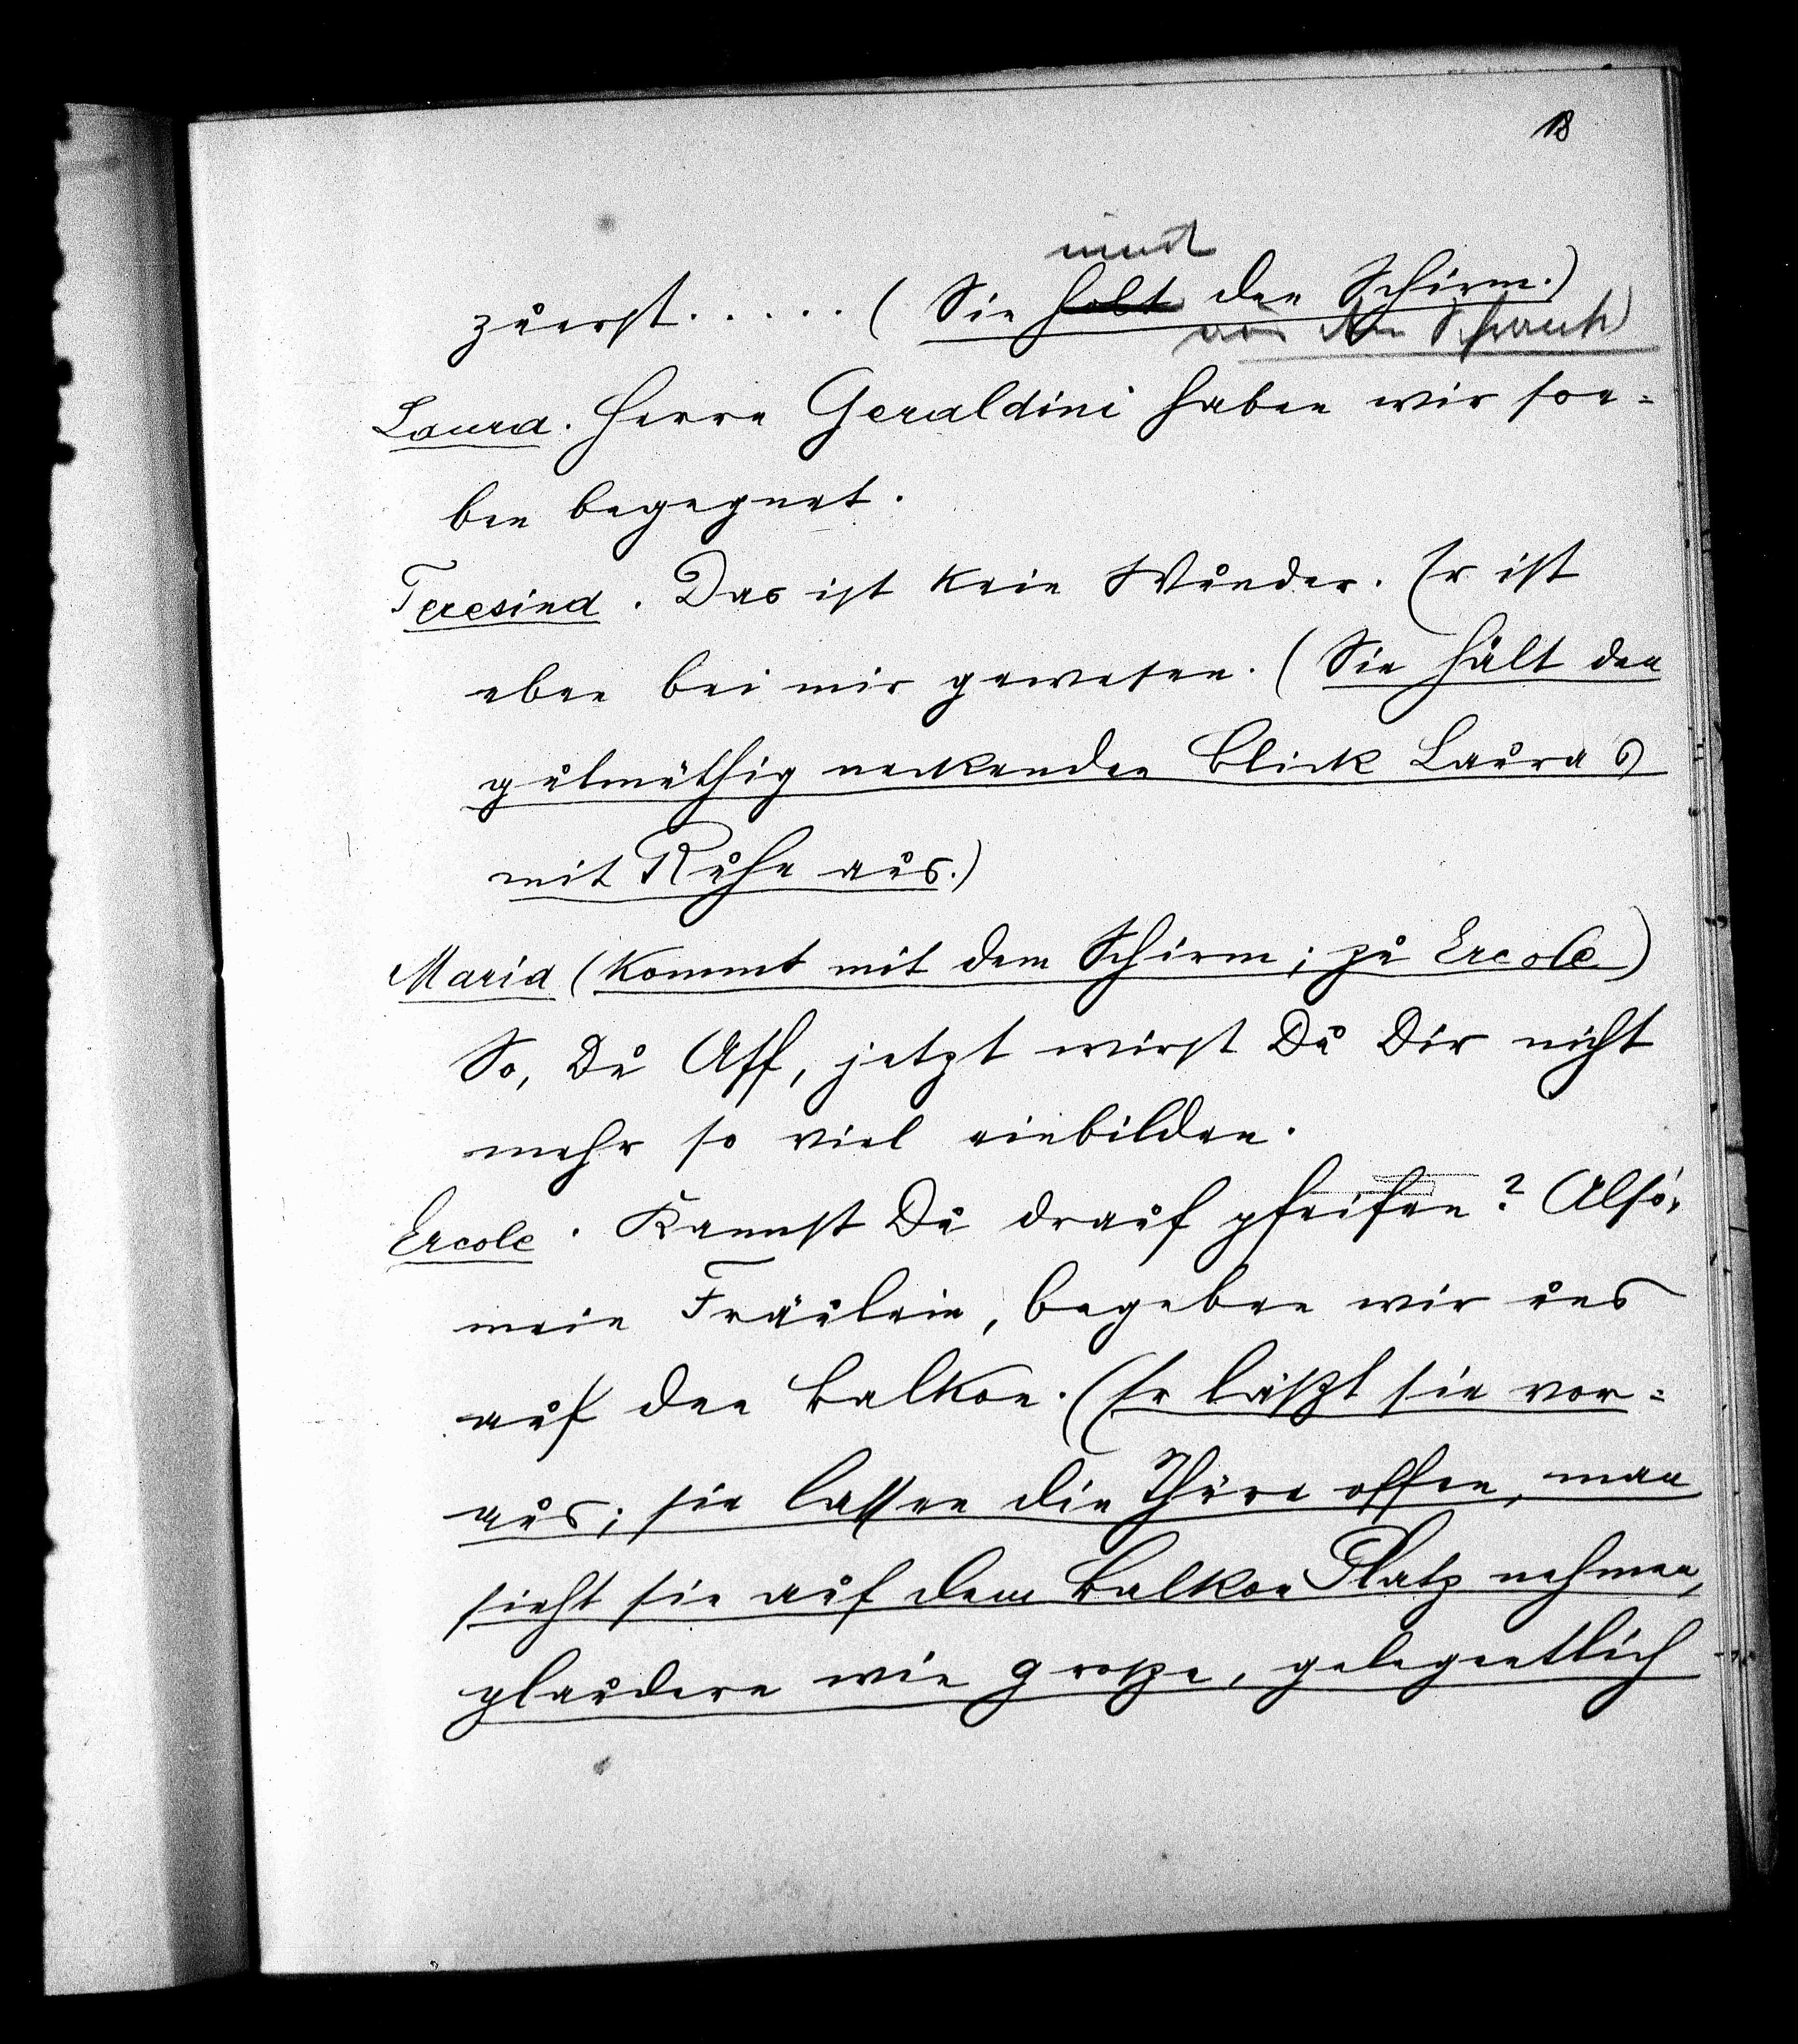 18
nimt
zuerst..... (Sie holt den Schirm.)
aus dem Schrank)
Laura. Herrn Geraldini haben wir soe=
ben begegnet.
Teresina. Das ist kein Wunder. Er ist
eben bei mir gewesen. (Sie hält den
gutmüthig neckenden Blick Lauras
mit Ruhe aus.)
Maria (kommt mit dem Schirm; zu Ercole)
So, Du Aff, jetzt wirst Du Dir nicht
mehr so viel einbilden.
Ercole. Kannst Du drauf pfeifen? Also,
mein Fräulein, begeben wir uns
auf den Balkon. (Er läßt sie vor=
aus; sie lassen die Thüre offen, man
sieht sie auf dem Balkon Platz nehmen,
plaudern wie große, gelegentlich